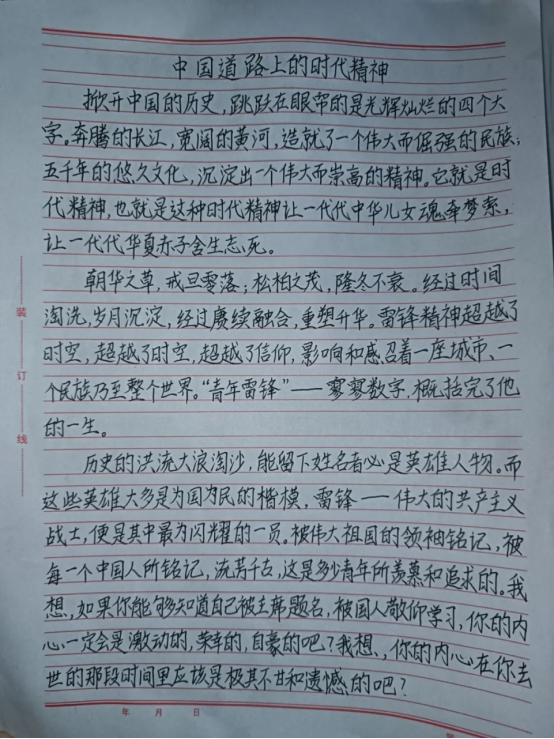 中国道路上的时代精神
掀开中国的历史，跳跃在眼帘的是光辉灿烂的四个大
字。奔腾的长江，宽阔的黄河，造就了一个伟大而倔强的民族；
五千年的悠久文化，沉淀出一个伟大而崇高的精神。它就是时
代精神，也就是这种时代精神让一代代中华儿女魂牵梦萦，
让一代代华夏赤子舍生忘死。
朝华之草，戒旦零落；松柏之茂，隆冬不衰。经过时间
淘洗，岁月沉淀，经过赓续融合，重塑升华。雷锋精神超越了
时空，超越了时空，超越了信仰，影响和感召着一座城市、一
个民族乃至整个世界。“青年雷锋”——寥寥数字，概括完了他
的一生。
历史的洪流大浪淘沙，能留下姓名者必是英雄人物。而
这些英雄大多是为国为民的楷模，雷锋——伟大的共产主义
战士，便是其中最为闪耀的一员。被伟大祖国的领袖铭记，被
每一个中国人所铭记，流芳千古，这是多少青年所羡慕和追求的。我
想，如果你能够知道自己被主席题名，被国人敬仰学习，你的内
心一定会是激动的，荣幸的，自豪的吧？我想，你的内心在你去
世的那段时间里应该是极其不甘和遗憾的吧？
装
订
线
年 月 日